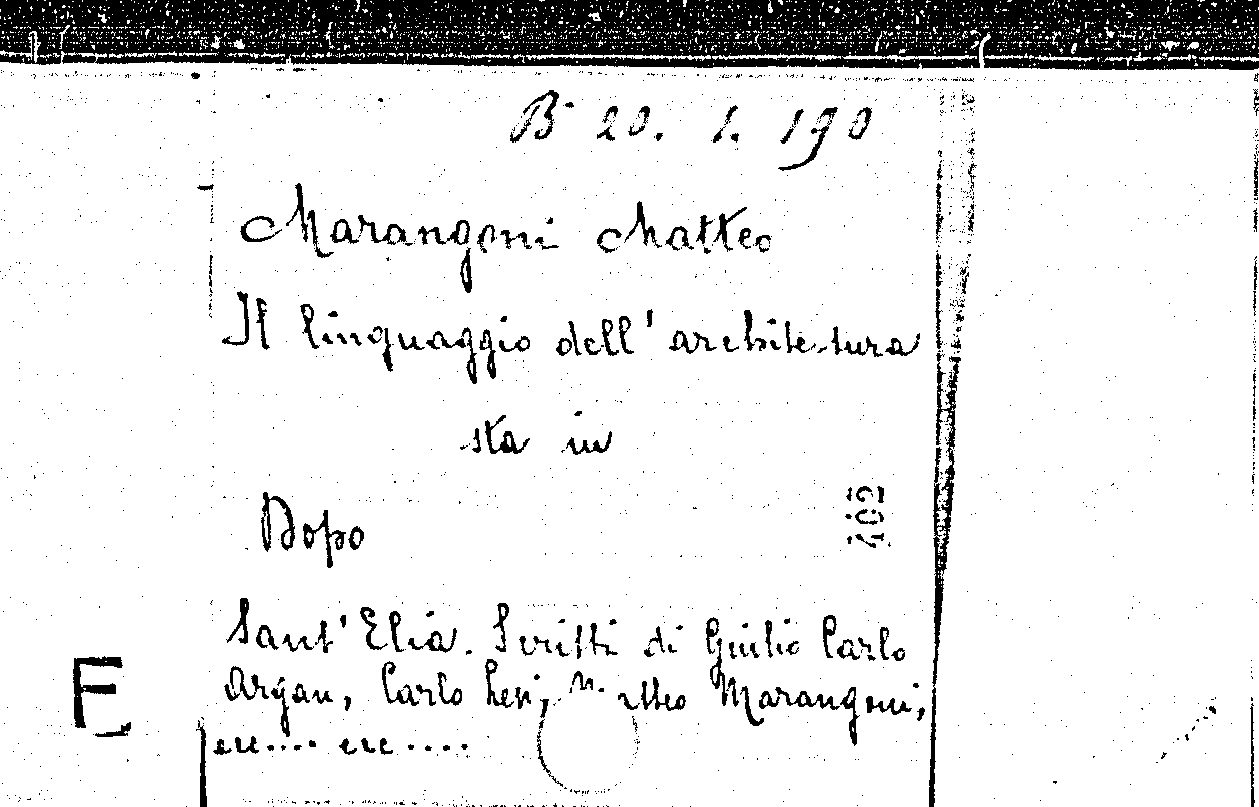 B 20. 1. 190
Marangoni Matteo
Il linguaggio dell'architettura
sta in
Dopo
402
Sant'Elia. Scritti di Giulio Carlo
Argan, Carlo Levi, Matteo Marangoni,
ecc.... ecc....
E